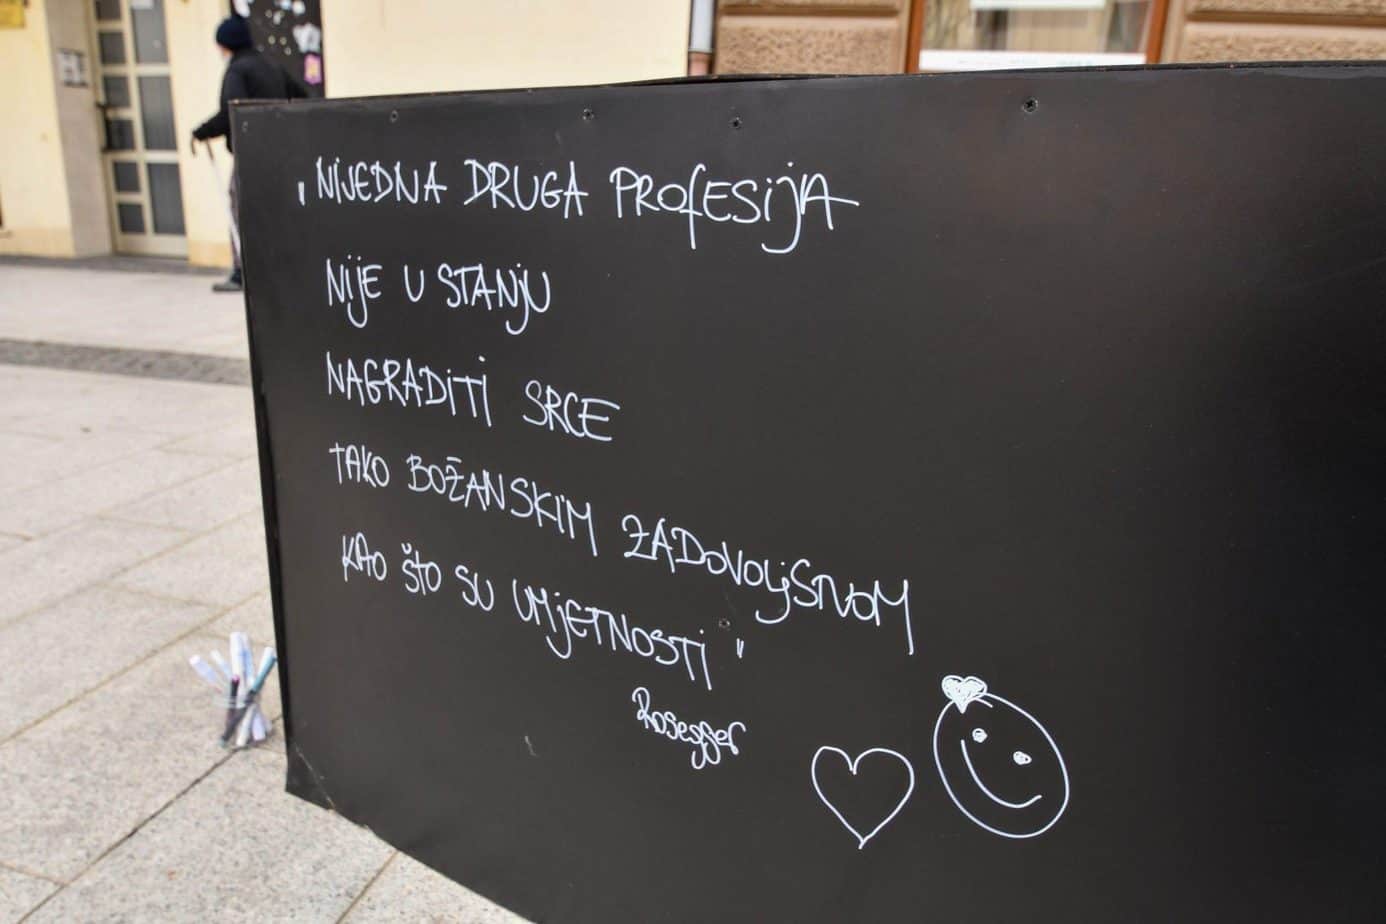 „NIJEDNA DRUGA PROFESIJA
NIJE U STANJU
NAGRADITI SRCE
TAKO BOŽANSKIM ZADOVOLJSTVOM
KAO ŠTO SU UMJETNOSTI"
Rosegger